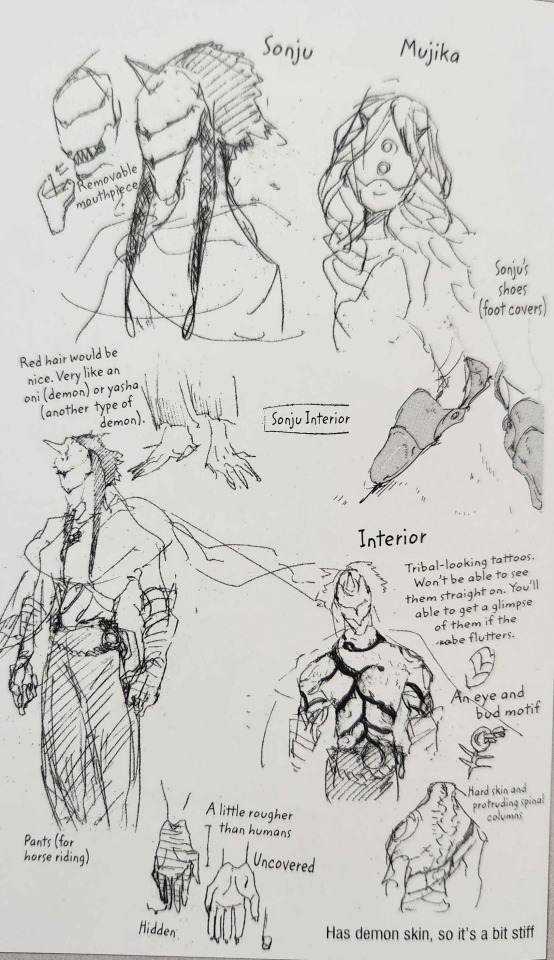 Sonju
Mujika
Removable
mouthpiece
Sonju's
shoes
(foot covers)
Red hair would be
nice. Very like an
oni (demon) or yasha
(another type of
demon).
Sonju Interior
Interior
Tribal-looking tattoos.
Won't be able to see
them straight on. You'll
able to get a glimpse
of them if the
robe flutters.
An eye and
bud motif
Hard skin and
protruding spinal
columns
A little rougher
than humans
Uncovered
Pants (for
horse riding)
Hidden
Has demon skin, so it's a bit stiff